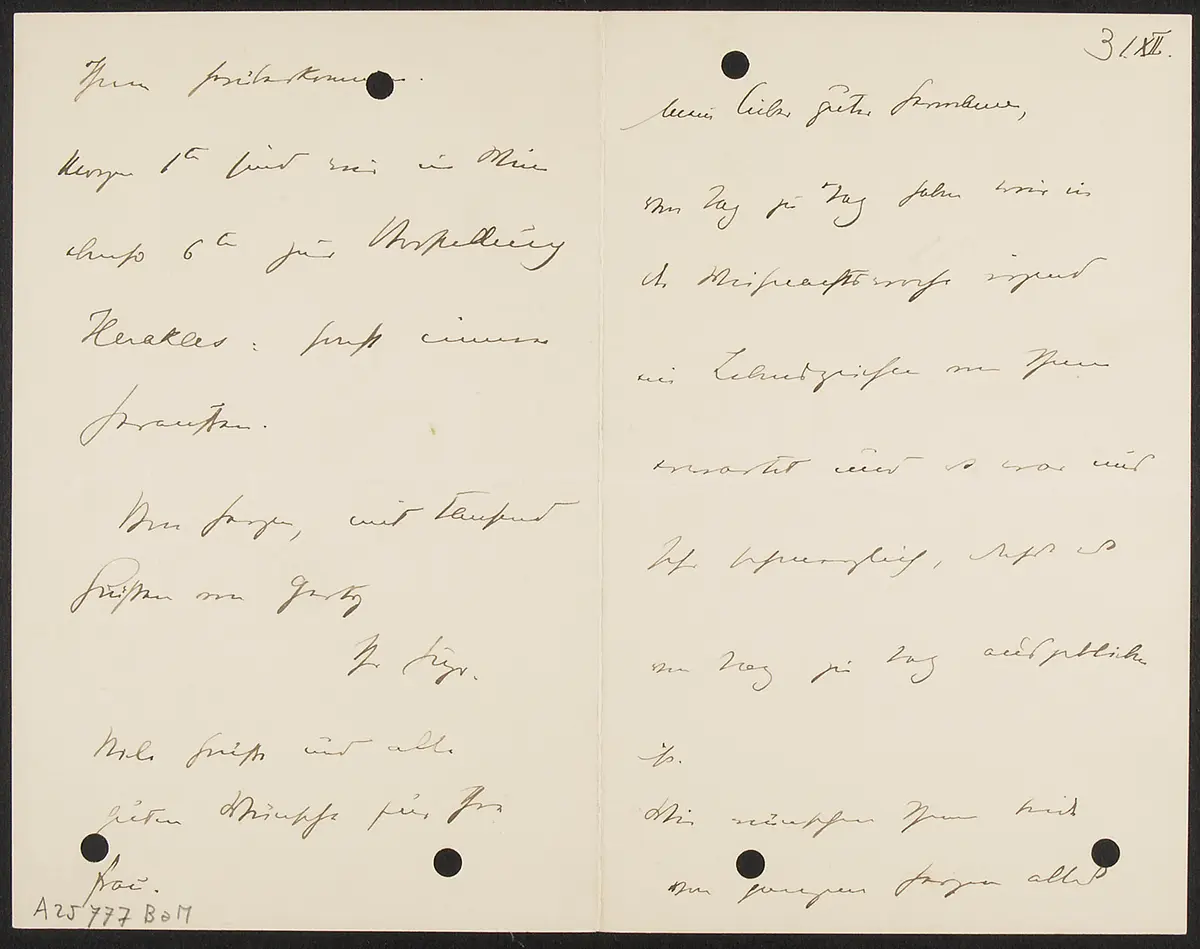 31/XII.
Mein lieber guter Hermann,
von Tag zu Tag haben wir in
der Weihnachtswoche irgend
ein Lebenszeichen von Ihnen
erwartet und es war uns
sehr schmerzlich, dass es
von Tag zu Tag ausgeblieben
ist.
Wir wünschen Ihnen beide
von ganzem Herzen alles
Ihnen herüberkommen.
Morgen 1ten sind wir in Wien
ebenso 6ten zur Vorstellung
Herakles: sonst immer
heraussen.
Von Herzen, mit tausend
Grüssen von Gerty
Ihr Hugo.
Viele Grüsse und alle
guten Wünsche für Ihre
Frau.
A 25 777 BaM